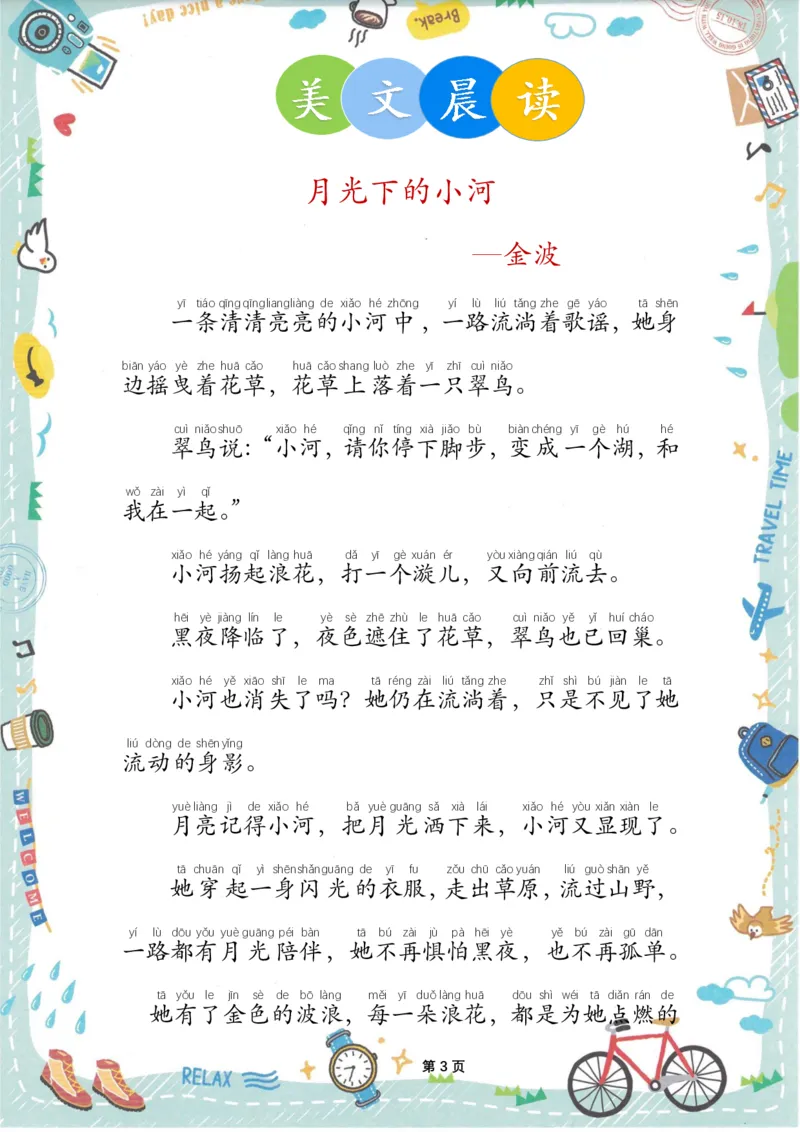 Have a nice day!
Break.
美文晨读
月光下的小河
—金波
yī tiáo qīng qīng liang liàng de xiǎo hé zhōng yí lù liú tǎng zhe gē yáo tā shēn
一条清清亮亮的小河中，一路流淌着歌谣，她身
biān yáo yè zhe huā cǎo huā cǎo shang luò zhe yī zhī cuì niǎo
边摇曳着花草，花草上落着一只翠鸟。
cuì niǎo shuō xiǎo hé qǐng nǐ tíng xià jiǎo bù biàn chéng yī gè hú hé
翠鸟说：“小河，请你停下脚步，变成一个湖，和
wǒ zài yì qǐ
我在一起。”
xiǎo hé yáng qǐ làng huā dǎ yī gè xuán ér yòu xiàng qián liú qù
小河扬起浪花，打一个漩儿，又向前流去。
hēi yè jiàng lín le yè sè zhē zhù le huā cǎo cuì niǎo yě yǐ huí cháo
黑夜降临了，夜色遮住了花草，翠鸟也已回巢。
xiǎo hé yě xiāo shī le ma tā réng zài liú tǎng zhe zhǐ shì bú jiàn le tā
小河也消失了吗？她仍在流淌着，只是不见了她
liú dòng de shēn yǐng
流动的身影。
yuè liàng jì de xiǎo hé bǎ yuè guāng sǎ xià lái xiǎo hé yòu xiǎn xiàn le
月亮记得小河，把月光洒下来，小河又显现了。
tā chuān qǐ yì shēn shǎn guāng de yī fu zǒu chū cǎo yuán liú guò shān yě
她穿起一身闪光的衣服，走出草原，流过山野，
yí lù dōu yǒu yuè guāng péi bàn tā bú zài jù pà hēi yè yě bú zài gū dān
一路都有月光陪伴，她不再惧怕黑夜，也不再孤单。
tā yǒu le jīn sè de bō làng měi yī duǒ làng huā dōu shì wéi tā diǎn rán de
她有了金色的波浪，每一朵浪花，都是为她点燃的
TRAVEL TIME
WELCOME
RELAX
第 3 页